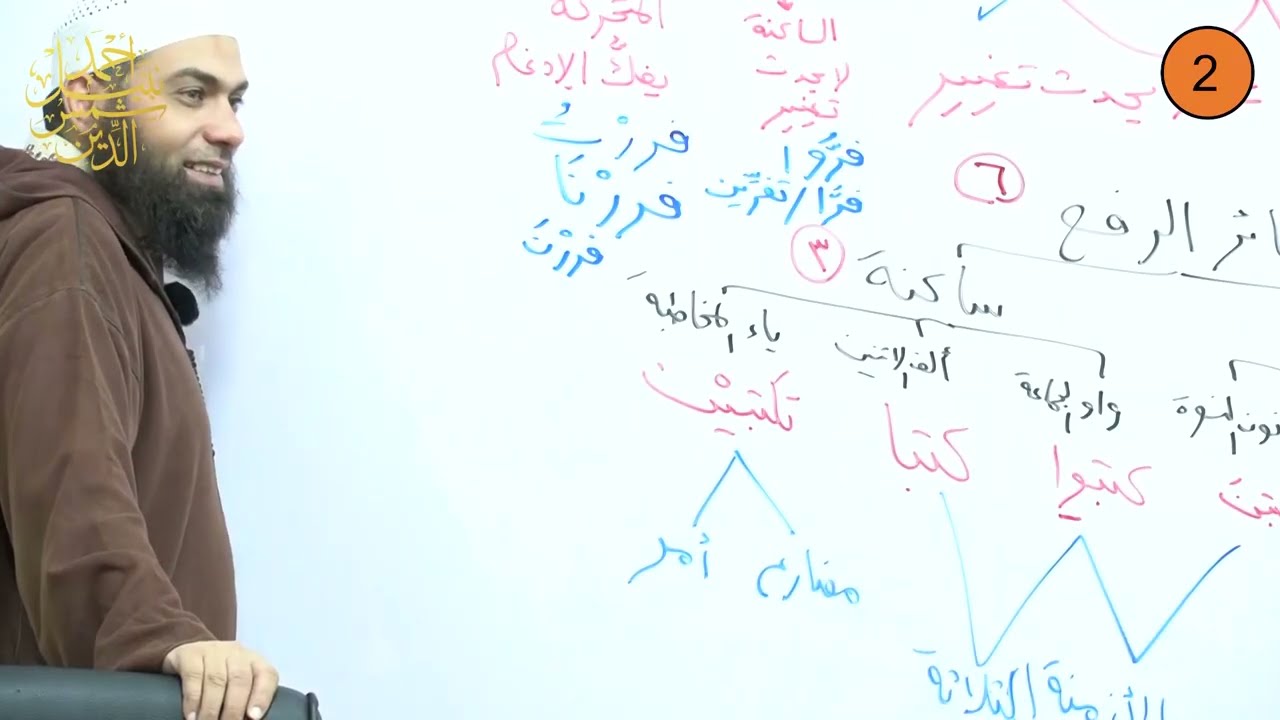 المتحركة
الساكنة
يفكُّ الإدغام
لا يحدث
تغيير
يحدث تغيير
2
فررْتُ
فرُّوا
فررْنَا
فرَّا / تفرِّين
فررْتَ
٦
ائر الرفع
٣
ساكنة
ياء المخاطبة
ألف الاثنين
واو الجماعة
نون النسوة
تكتبين
كتبا
كتبوا
مضارع
أمر
الأزمنة الثلاثة
أحمد
نبيل
شمس
الدِّين